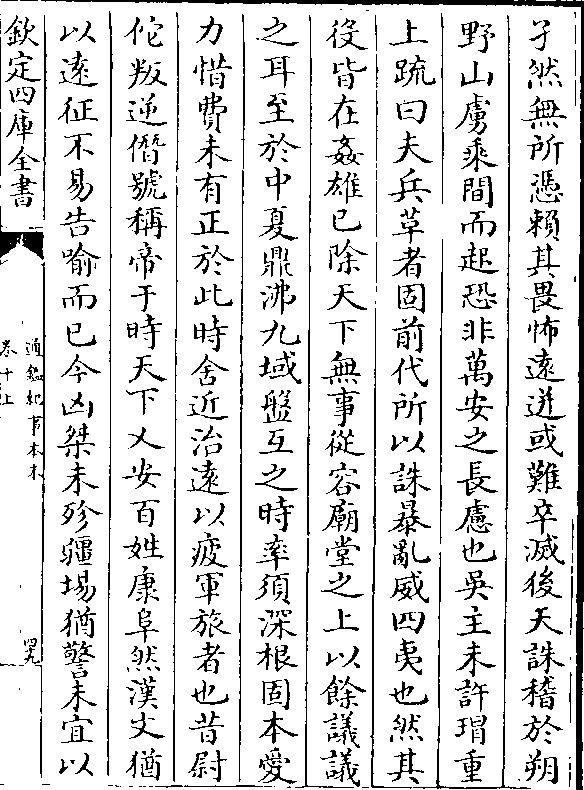 孑然無所憑賴其畏怖遠迸或難卒滅後天誅稽於朔
野山虜乘間而起恐非萬安之長慮也吳主未許瑁重
上疏曰夫兵革者固前代所以誅暴亂威四夷也然其
役皆在姦雄已除天下無事從容廟堂之上以餘議議
之耳至於中夏鼎沸九域盤互之時率須深根固本愛
力惜費未有正於此時舍近治遠以疲軍旅者也昔尉
佗叛逆僭號稱帝于時天下乂安百姓康阜然漢文猶
以遠征不易告喻而已今凶桀未殄疆埸猶警未宜以
欽定四庫全書
通鑑紀事本末
卷十上
四九